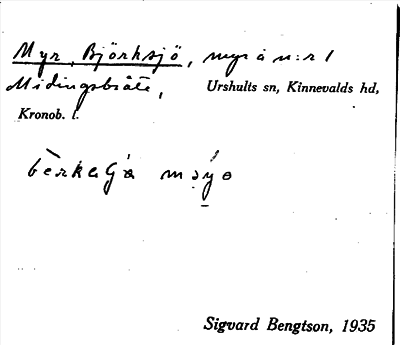 Myr, Björksjö, myr å n:r 1
Midingsbråte, Urshults sn, Kinnevalds hd,
Kronob. l.
Sigvard Bengtson, 1935